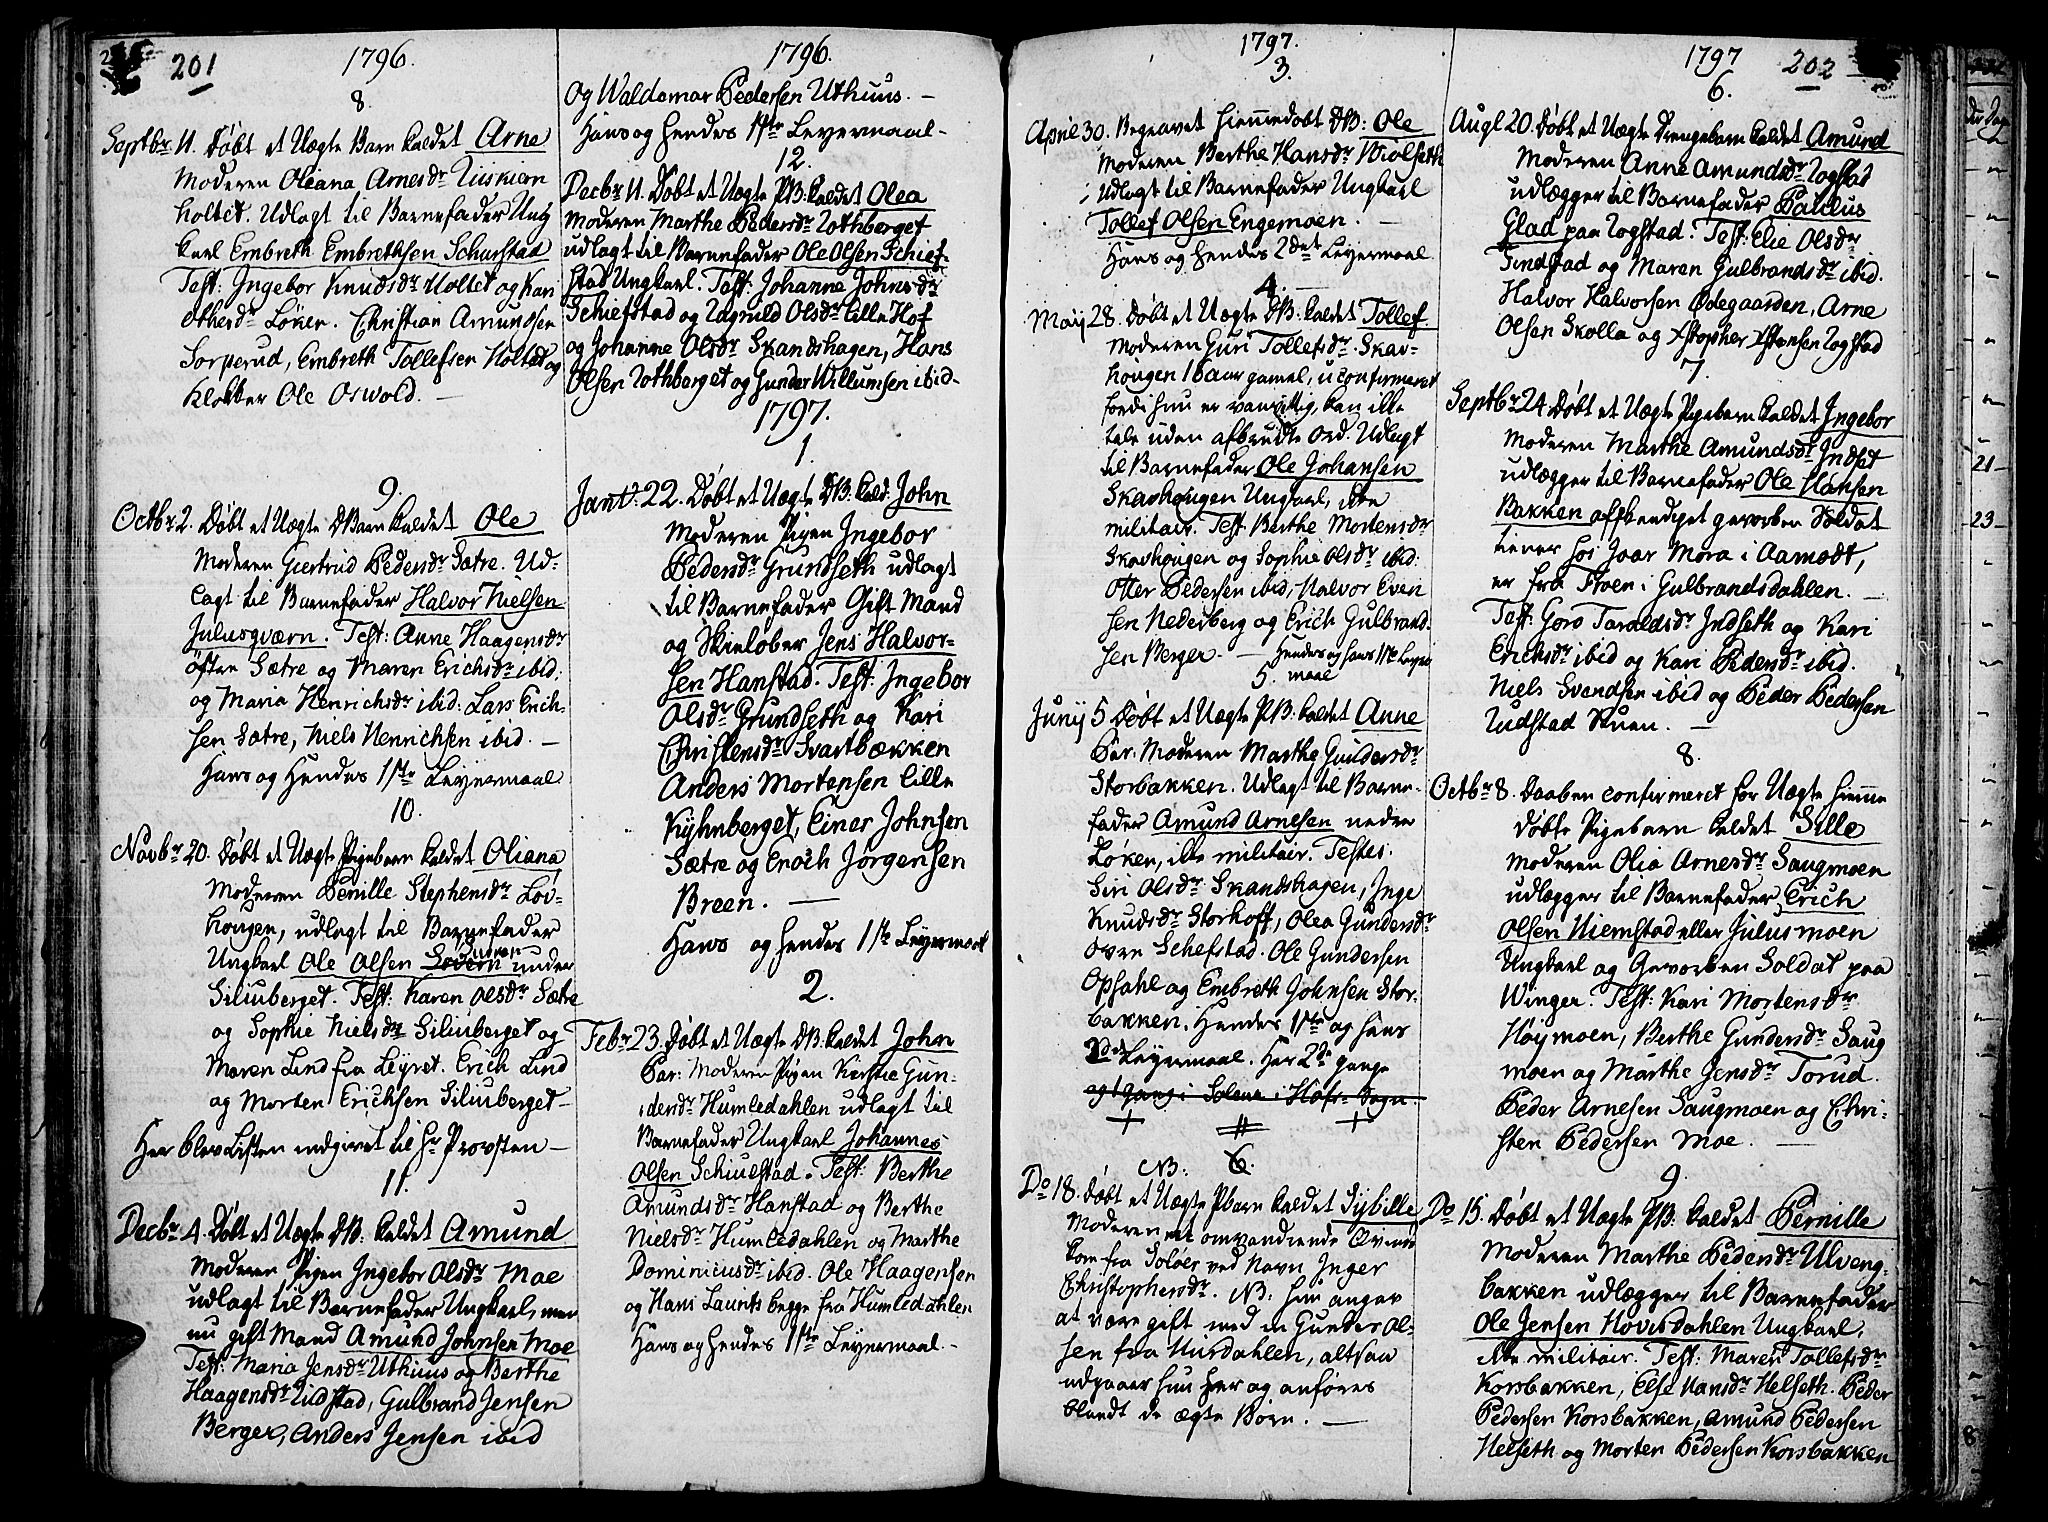 201
1796.
8.
Septbr 11. Døbt et Uægte Barn kaldet Arne
Moderen Oliana Arnesdr Kiskiern
holtet. Udlagt til Barnefader Ung
karl Embreth Embrethsen Schurstad
Test: Ingebor Knudsdr Holtet og Kari
Othersdr Løken. Christian Amundsen
Sorperud, Embreth Tollefsen Holtet og
Klokker Ole Oswold. —
9.
Octbr 2. Døbt et Uægte DBarn kaldet Ole
Moderen Giertrud Pedersdr Sætre. Ud-
lagt til Barnefader Halvor Nielsen
Julusqværn. Test: Anne Haagensdr
øften Sætre og Maren Erichsdr ibid:
og Maria Henrichsdr ibid: Lars Erich-
sen Sætre, Niels Henrichsen ibid. —
Hans og Hendes 1ste Leyermaal
10.
Novbr 20. Døbt et Uægte Pigebarn kaldet Oliana
Moderen Pernille Stephensdr Løv-
hougen, udlagt til Barnefader
Ungkarl Ole Olsen under
Siliuberget. Test: Karen Olsdr Sætre
og Sophie Nielsdr Siliuberget og
Maren Lind fra Leyret. Erich Lind
og Morten Erichsen Siliuberget —
Her blev Listen indgivet til Hr Provsten —
11.
Decbr 4. Døbt et Uægte DB: kaldet Amund
Moderen Pigen Ingebor Olsdr Moe
udlagt til Barnefader Ungkarl, men
nu gift Mand Amund Johnsen Moe
Test: Maria Jensdr Uthuus og Berthe
Haagensdr Lidstad, Gulbrand Jensen
Berger, Anders Jensen ibid
1796.
Og Waldemar Pedersen Uthuus. —
Hans og Hendes 1ste Leyermaal —
12.
Decbr 11. Døbt et Uægte PB: kaldet Olea
Moderen Marthe Pedersdr Lothberget
udlagt til Barnefader Ole Olsen Schief-
stad Ungkarl. Test: Johanne Johnsdr
Schiefstad og Ragnild Olsdr Lille Hof
og Johanne Olsdr Skandshagen, Hans
Olsen Lothberget og Gunder Willumsen ibid —
1797.
1
Janv: 22. Døbt et Uægte DB: kald. John
Moderen Pigen Ingebor
Pedersdr Grundseth udlagt
til Barnefader Gift Mand
og Skieløber Jens Halvor-
sen Hanstad. Test: Ingebor
Olsdr Grundseth og Kari
Christensdr Svartbækken
Anders Mortensen Lille
Kyhnberget, Einer Johnsen
Sætre og Enoch Jørgensen
Breen. —
Hans og Hendes 1ste Leyermaal
2.
Febr 23. Døbt et Uægte DB. kaldet John
Par: Moderen Pigen Kirstie Gun-
dersdr Humledahlen udlagt til
Barnefader Ungkarl Johannes
Olsen Schiulstad. Test: Berthe
Amundsdr Hanstad og Berthe
Nielsdr Humledahlen og Marthe
Dominicusdr ibid. Ole Haagensen
og Hans Lauritz begge fra Humledahlen
Hans og Hendes 1ste Leyermaal. —
1797.
3.
April 30. Begravet Hiemmedøbt DB: Ole
Moderen Berthe Hansdr Kiølseth
Udlagt til Barnefader Ungkarl
Tollef Olsen Engemoen. —
Hans og Hendes 2det Leyermaal
4.
Maij 28. Døbt et Uægte DB: kaldet Tollef
Moderen Guri Tollefsdr Skav-
hougen 16 aar gamel, uconfirmeret
fordi hun er vanvittig, kan ikke
tale uden afbrudte Ord. Udlagt
til Barnefader Ole Johansen
Skavhougen Ungkarl, ikke
militair. Test Berthe Mortensdr
Skavhougen og Sophie Olsdr ibid:
Otter Pedersen ibid, Halvor Even
sen Nederberg og Erich Gulbrand-
sen Berger. — Hendes og hans 1ste Leyer
maal
5.
Junij 5 Døbt et Uægte PB: kaldet Anne
Par. Moderen Marthe Gundersdr
Storbakken. Udlagt til Barne-
fader Amund Arnesen nedre
Løken, ikke militair. Testes.
Siri Olsdr Skandshagen, Inge
Knudsdr Storhoff, Olea Gundersdr
oven Schefstad. Ole Gundersen
Opsahl og Embreth Johnsen Stor-
bakken. Hendes 1ste og hans
2det Leyermaal. Her 2de gange
og 1 gang i Soløer i Hofs Sogn.
NB: 6.
Do 18. Døbt et Uægte PBarn kaldet Sybille
Moderen et omvandrende Qvinde
kom fra Soløer ved Navn Inger
Christophersdr. NB: hun angav
at være gift med en Gunder Ol-
sen fra Hurdahlen, altsaa
udgaaer hun her og anføres
blandt de ægte Børn. —
1797
202
6.
Augl 20. Døbt et Uægte Drengebarn kaldet Amund
Moderen Anne Amundsdr Logstad
udlægger til Barnefader Paulus
Glad paa Logstad. Test: Elie Olsdr
Tindstad og Maren Gulbrandsdr ibid.
Halvor Halvorsen Ødegaarden, Arne
Olsen Skolla og Xstopher Xstensen Logstad
7.
Septbr 24. Døbt et Uægte Pigebarn kaldet Ingebor
Moderen Marthe Amundsdr Indset
udlægger til Barnefader Ole Hansen
Bakken afskendiget gevorben Soldat
tiener hos Joar Mora i Aamodt,
er fra Froen i Gulbrandsdahlen. —
Test: Goro Taraldsdr Indseth og Kari
Erichsdr ibid og Kari Pedersdr ibid.
Niels Svendsen ibid og Peder Pedersen
Rudstad Stuen. —
8.
Octbr 8. Daaben confirmeret for Uægte hiemme
døbte Pigebarn kaldet Sille
Moderen Olia Arnesdr Saugmoen
udlægger til Barnefader Erich
Olsen Hiemstad eller Julusmoen
Ungkarl og Gevorben Soldat paa
Winger. Test: Kari Mortensdr
Høymoen, Berthe Gundersdr Saug
moen og Marthe Jensdr Torud.
Peder Arnesen Saugmoen og Chri-
sten Pedersen Moe. —
9.
Do 15. Døbt et Uægte PB: kaldet Pernille
Moderen Marthe Pedersdr Ulveng-
bakken udlægger til Barnefader
Ole Jensen Hovisdahlen Ungkarl,
ikke militair. Test: Maren Tollefsdr
Korsbakken, Else Hansdr Helseth. Peder
Pedersen Korsbakken, Amund Pedersen
Helseth og Morten Pedersen Korsbakken
21
23
8